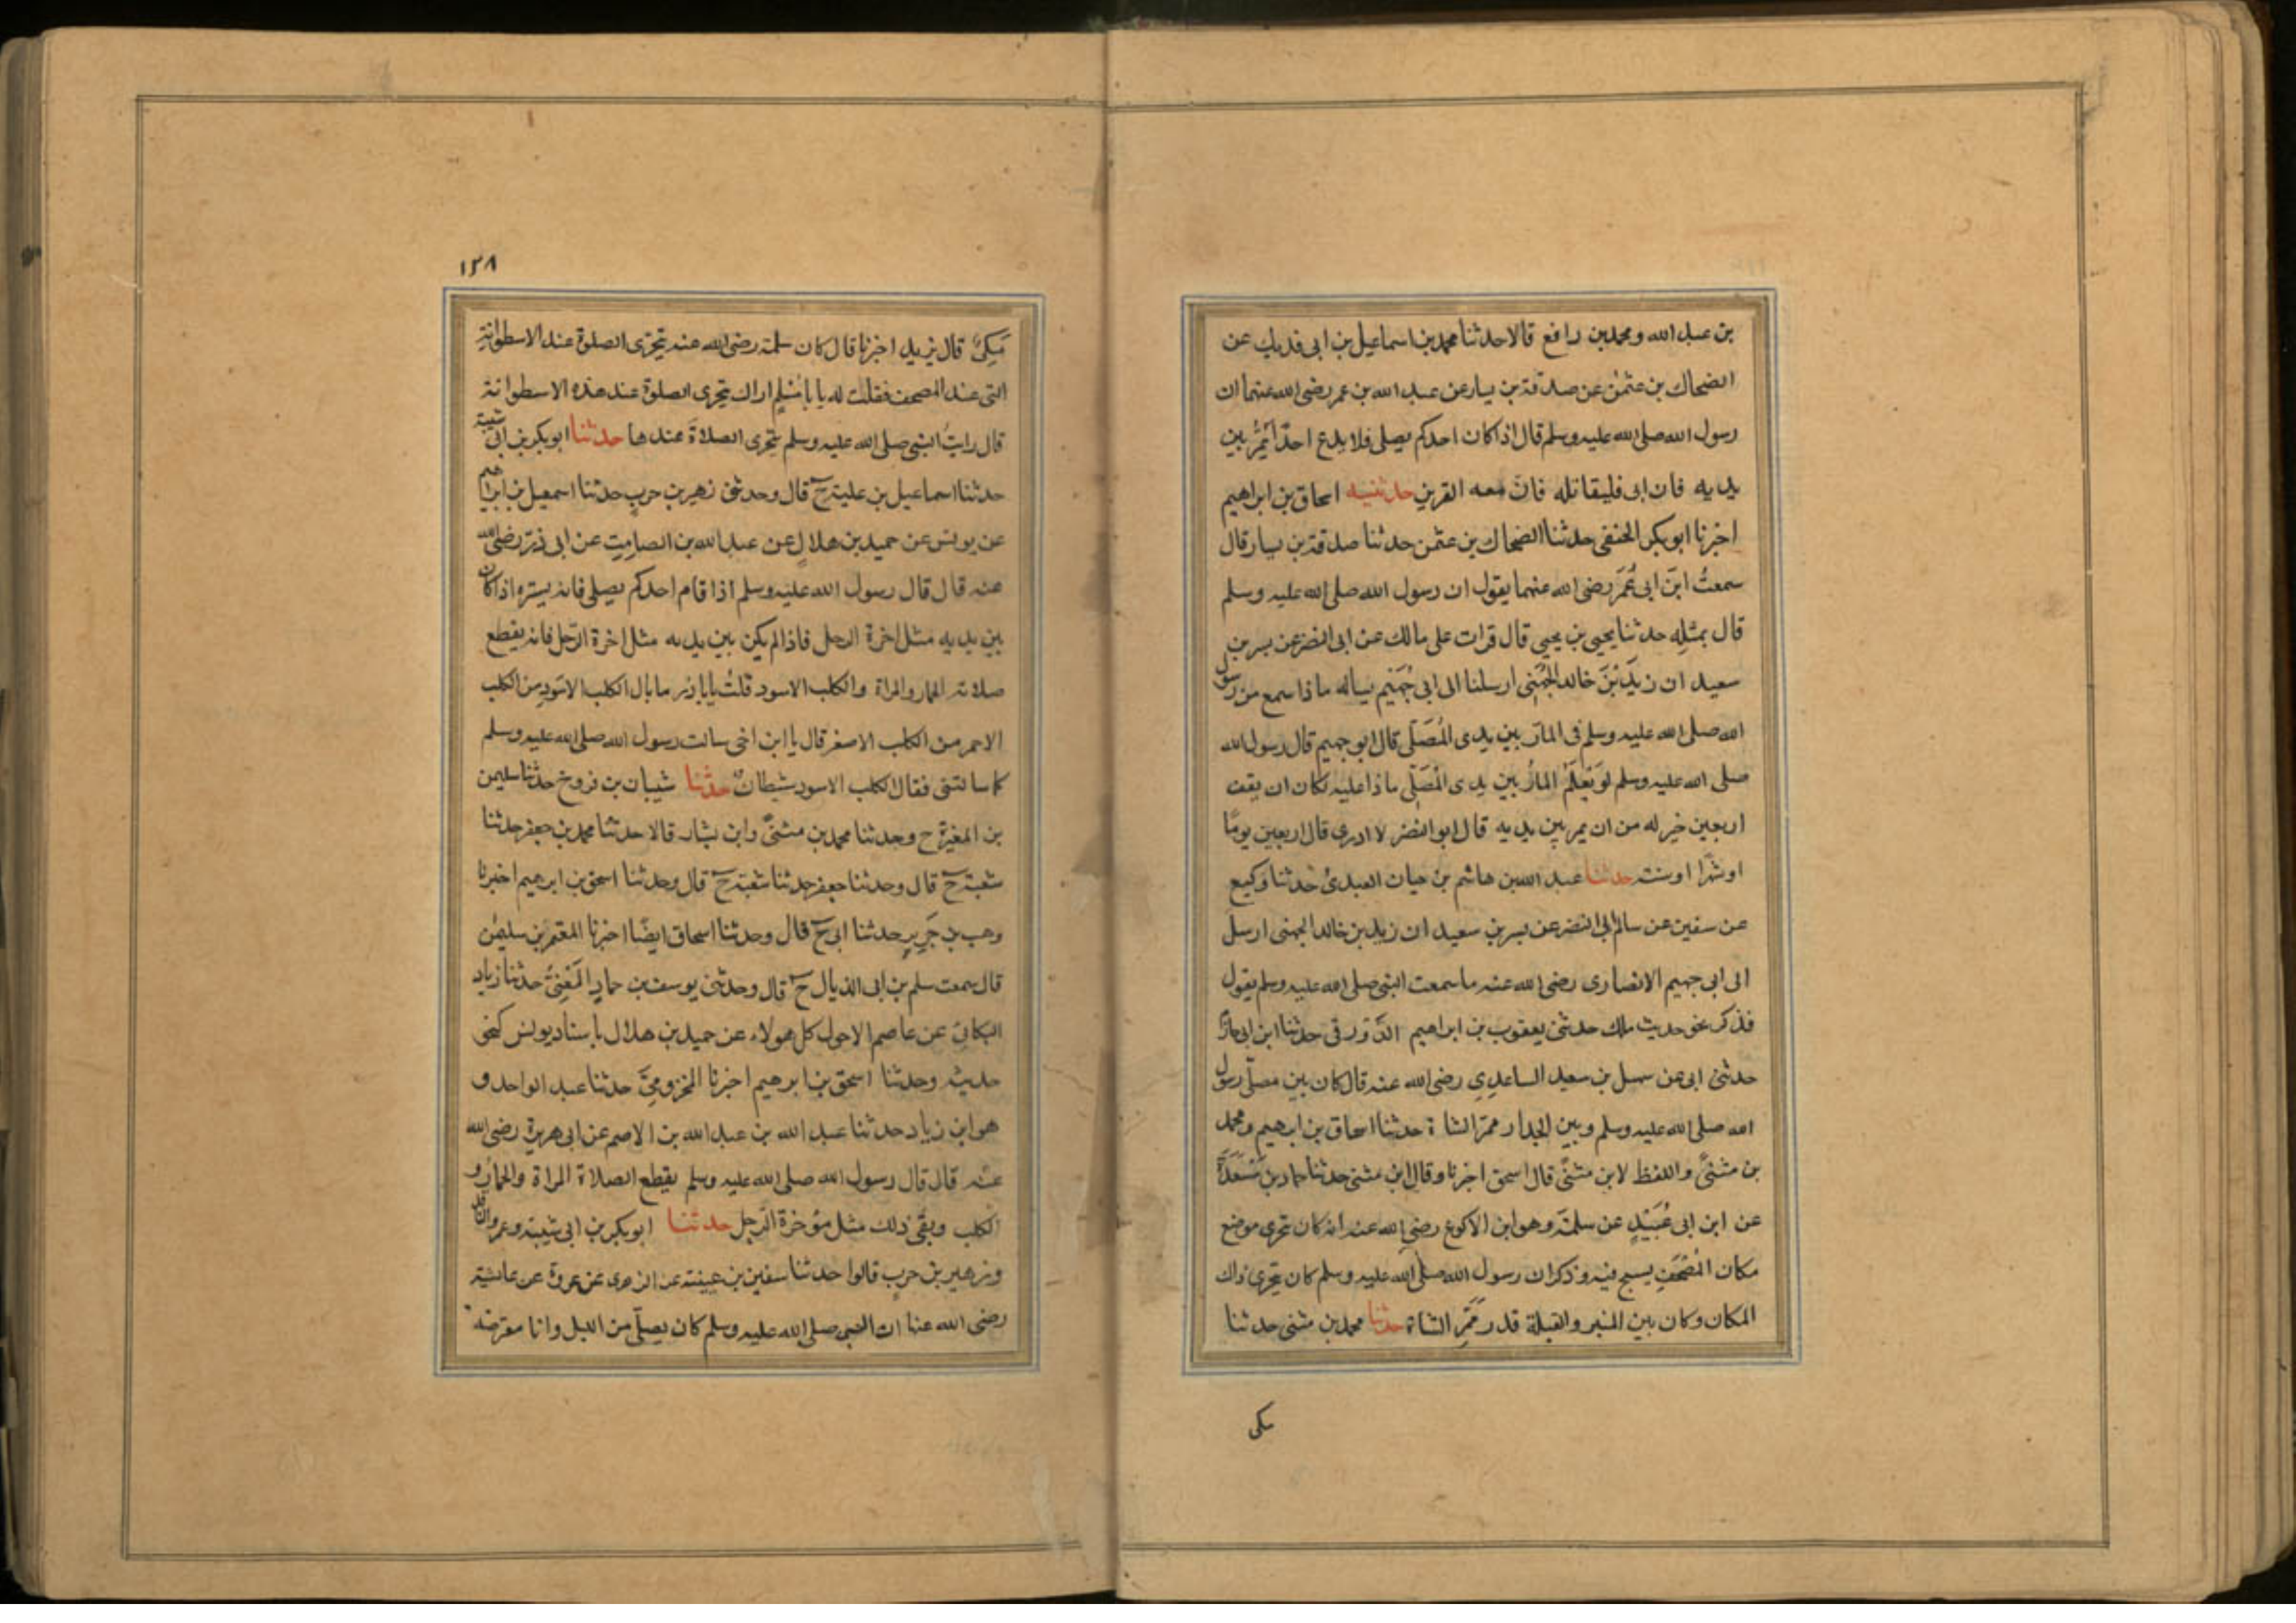 بن عبد الله ومحمد بن رافع قالا حدثنا محمد بن اسماعيل بن ابى فديك عن
الضحاك بن عثمٰن عن صدقة بن يسار عن عبد الله بن عمر رضى الله عنهما ان
رسول الله صلى الله عليه وسلم قال اذا كان احدكم يصلى فلا يدع احدًا يَمُرُّ بين
يديه فان ابى فليقاتله فانَّ معه القرين حدثنيه اسحاق بن ابراهيم
اخبرنا ابو بكر الحنفى حدثنا الضحاك بن عثمن حدثنا صدقة بن يسار قال
سمعتُ ابنَ ابى عُمَرَ رضى الله عنهما يقول ان رسول الله صلى الله عليه وسلم
قال بمثلِه حدثنا يحيى بن يحيى قال قرات على مالك عن ابى النضر عن بسر بن
سعيد ان زيدَ بْنَ خالد الجُهَنى ارسلنا الى ابى جُهَيْم يساله ماذا سمع من رسول
الله صلى الله عليه وسلم فى المارّ بين يدى المُصَلّى قال ابو جهيم قال رسول الله
صلى الله عليه وسلم لَوْ يَعْلَمُ المارُّ بين يدى المُصَلّى ماذا عليه لكان ان يقف
اربعين خير له من ان يمر بين يديه قال ابو النضر لا ادرى قال اربعين يومًا
او شهرًا او سنة حدثنا عبد الله بن هاشم بن حيان العبدىُّ حدثنا وكيع
عن سفين عن سالم ابى النضر عن بسر بن سعيد ان زيد بن خالد الجهنى ارسل
الى ابى جهيم الانصارى رضى الله عنه ما سمعت النبى صلى الله عليه وسلم يقول
فذكر نحو حديث ملك حدثنى يعقوب بن ابراهيم الدَّوْرَقى حدثنا ابن ابى حازم
حدثنى ابى عن سهل بن سعيد الساعدِى رضى الله عنه قال كان بين مصلّى رسول
الله صلى الله عليه وسلم وبين الجدار ممرّ الشاة حدثنا اسحاق بن ابرهيم ومحمد
بن مثنىًّ واللفظ لابن مثنىًّ قال اسحق اخبرنا وقال ابن مثنى حدثنا حماد بن مَسْعَدَةَ
عن ابن ابى عُبَيْدٍ عن سلمة وهو ابن الاكوع رضى الله عنه انه كان يتحرى موضع
مكان المُصْحَفِ يسبح فيه وذكر ان رسول الله صلى الله عليه وسلم كان يتحرى ذلك
المكان وكان بين المنبر والقبلة قدر مَمَرِّ الشاة حدثنا محمد بن مثنى حدثنا
مكى
١٣٨
مَكِىٌّ قال يزيد اخبرنا قال كان سلمة رضى الله عنه يتحرى الصلوة عند الاسطوانةِ
التى عند المصحف فقلت له يا بامُسْلم اراك يتحرى الصلوة عند هذه الاسطوانة
قال رايتُ النبى صلى الله عليه وسلم يتحرى الصلاةَ عندها حدثنا ابو بكر بن ابى شيبة
حدثنا اسماعيل بن علية ح قال وحدثنى زهير بن حربٍ حدثنا اسمعيل بن ابراهيم
عن يونس عن حميد بن هلالٍ عن عبد الله بن الصامِتِ عن ابى ذرّ رضى الله
عنه قال قال رسول الله عليه وسلم اذا قام احدكم يصلى فانه يستره اذا كان
بين يديه مثل اخرة الرحل فاذا لم يكن بين يديه مثل اخرة الرّحل فانه يقطع
صلاته الحمار والمراة والكلب الاسود قلتُ يا باذر ما بال الكلب الاسَودِ من الكلب
الاحمر من الكلب الاصفر قال يا ابن اخى سالت رسول الله صلى الله عليه وسلم
كما سالتنى فقال الكلب الاسود شيطانٌ حدثنا شيبان بن فروخ حدثنا سليمن
بن المغيرة ح وحدثنا محمد بن مثنىًّ وابن بشار قالا حدثنا محمد بن جعفر حدثنا
شعبة ح قال وحدثنا جعفر حدثنا شعبة ح قال وحدثنا اسحق بن ابرهيم اخبرنا
وهب بن جَرِيرٍ حدثنا ابى ح قال وحدثنا اسحاق ايضًا اخبرنا المعتمر بن سليمٰن
قال سمعت سلم بن ابى الذيال ح قال وحدثنى يوسف بن حمادٍ المَعْنِىُّ حدثنا زياد
البكائى عن عاصم الاحول كل هولاء عن حميد بن هلال باسناد يونس كنحو
حديثه وحدثنا اسحق بن ابرهيم اخبرنا المخزومىَّ حدثنا عبد الواحد و
هو ابن زياد حدثنا عبد الله بن عبد الله بن الاصم عن ابى هريرة رضى الله
عنه قال قال رسول الله صلى الله عليه وسلم يقطع الصلاة المراة والحمار و
الكلب ويقى ذلك مثل مؤخرة الرحل حدثنا ابو بكر بن ابى شيبة وعمرو الناقد
وزهير بن حربٍ قالوا حدثنا سفين بن عيينة عن الزهرى عن عروة عن عائشة
رضى الله عنها ان النبى صلى الله عليه وسلم كان يصلّى من الليل وانا معترضة